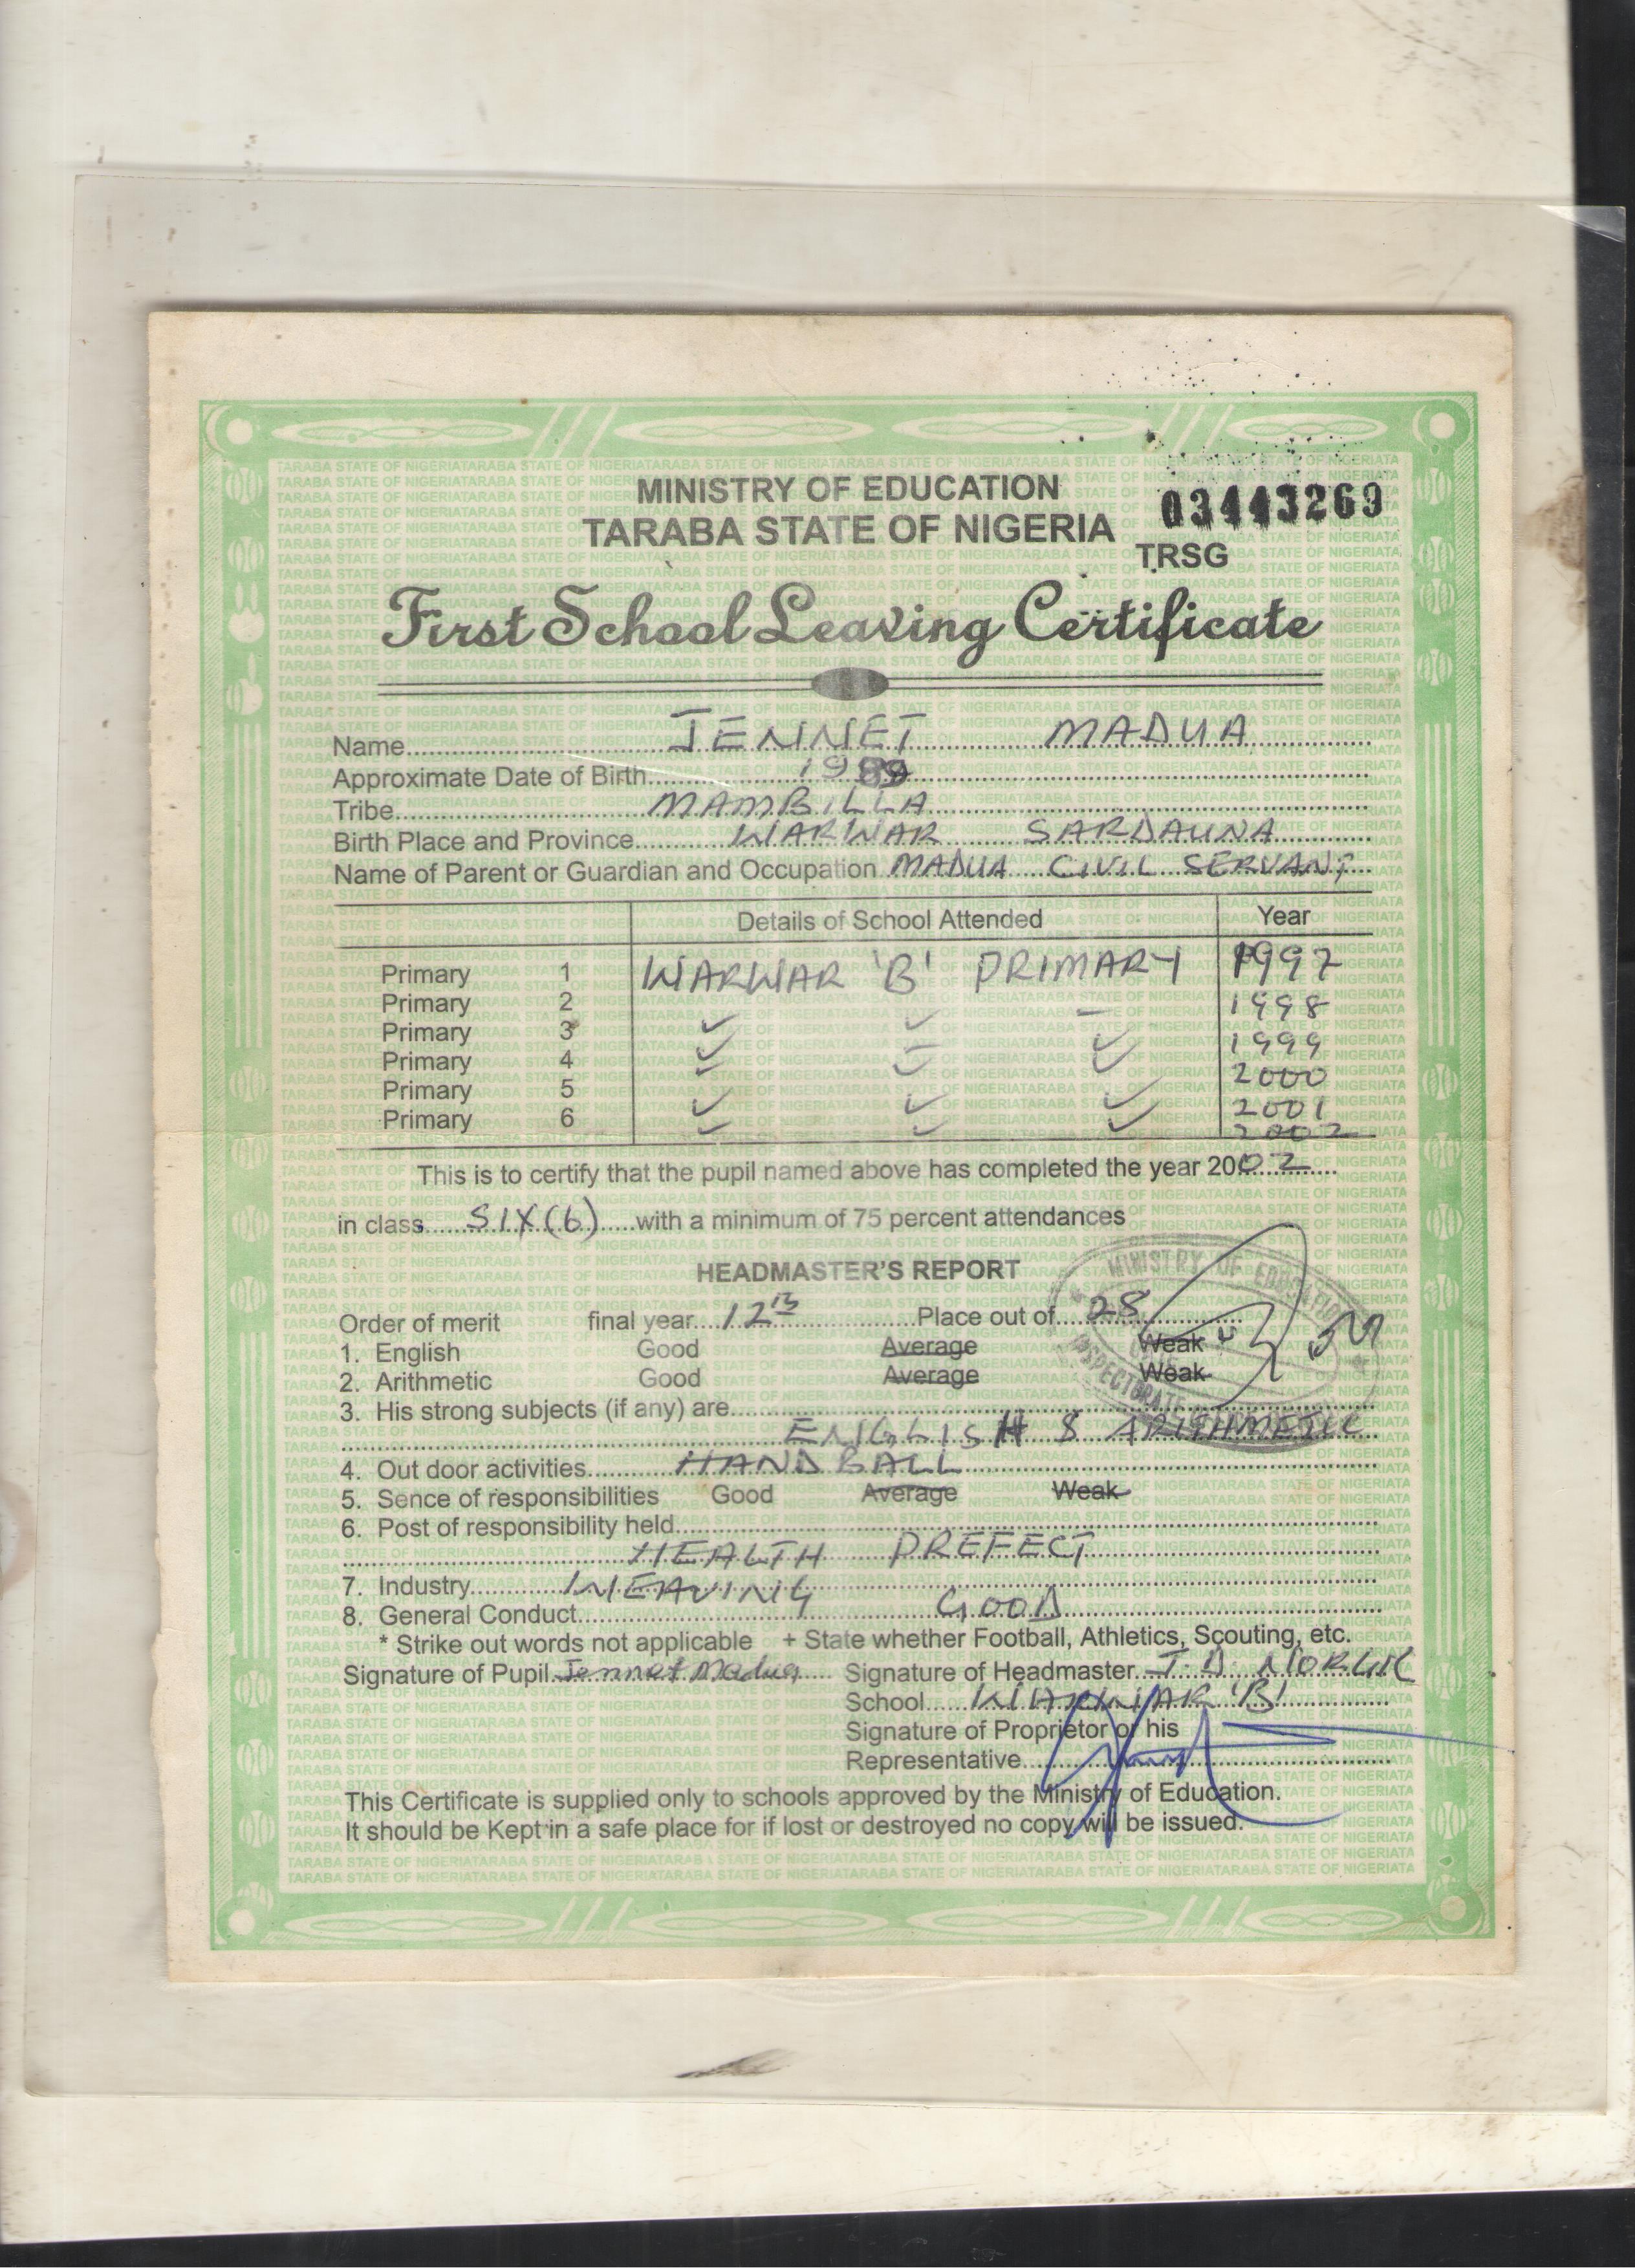 MINISTRY OF EDUCATION
TARABA STATE OF NIGERIA
03443269
TRSG
First School Leaving Certificate
Name JENNET MADUA
Approximate Date of Birth 1989
Tribe MAMBILLA
Birth Place and Province WARWAR SARDAUNA
Name of Parent or Guardian and Occupation MADUA CIVIL SERVANT
Details of School Attended Year
Primary 1 WARWAR 'B' PRIMARY 1997
Primary 2 1998
Primary 3 ✓ ✓ ✓ 1999
Primary 4 ✓ ✓ ✓ 2000
Primary 5 ✓ ✓ ✓ 2001
Primary 6 ✓ ✓ ✓ 2002
This is to certify that the pupil named above has completed the year 2002
in class SIX (6) with a minimum of 75 percent attendances
HEADMASTER'S REPORT
Order of merit final year 12th Place out of 28
1. English Good Average Weak
2. Arithmetic Good Average Weak
3. His strong subjects (if any) are
ENGLISH & ARITHMETIC
4. Out door activities HAND BALL
5. Sence of responsibilities Good Average Weak
6. Post of responsibility held
HEALTH PREFECT
7. Industry WEAVING
8. General Conduct GOOD
* Strike out words not applicable + State whether Football, Athletics, Scouting, etc.
Signature of Pupil Jennet Madua Signature of Headmaster J. D.
School WARWAR 'B'
Signature of Proprietor or his
Representative
This Certificate is supplied only to schools approved by the Ministry of Education.
It should be Kept in a safe place for if lost or destroyed no copy will be issued.
MINISTRY OF EDUCATION
INSPECTORATE